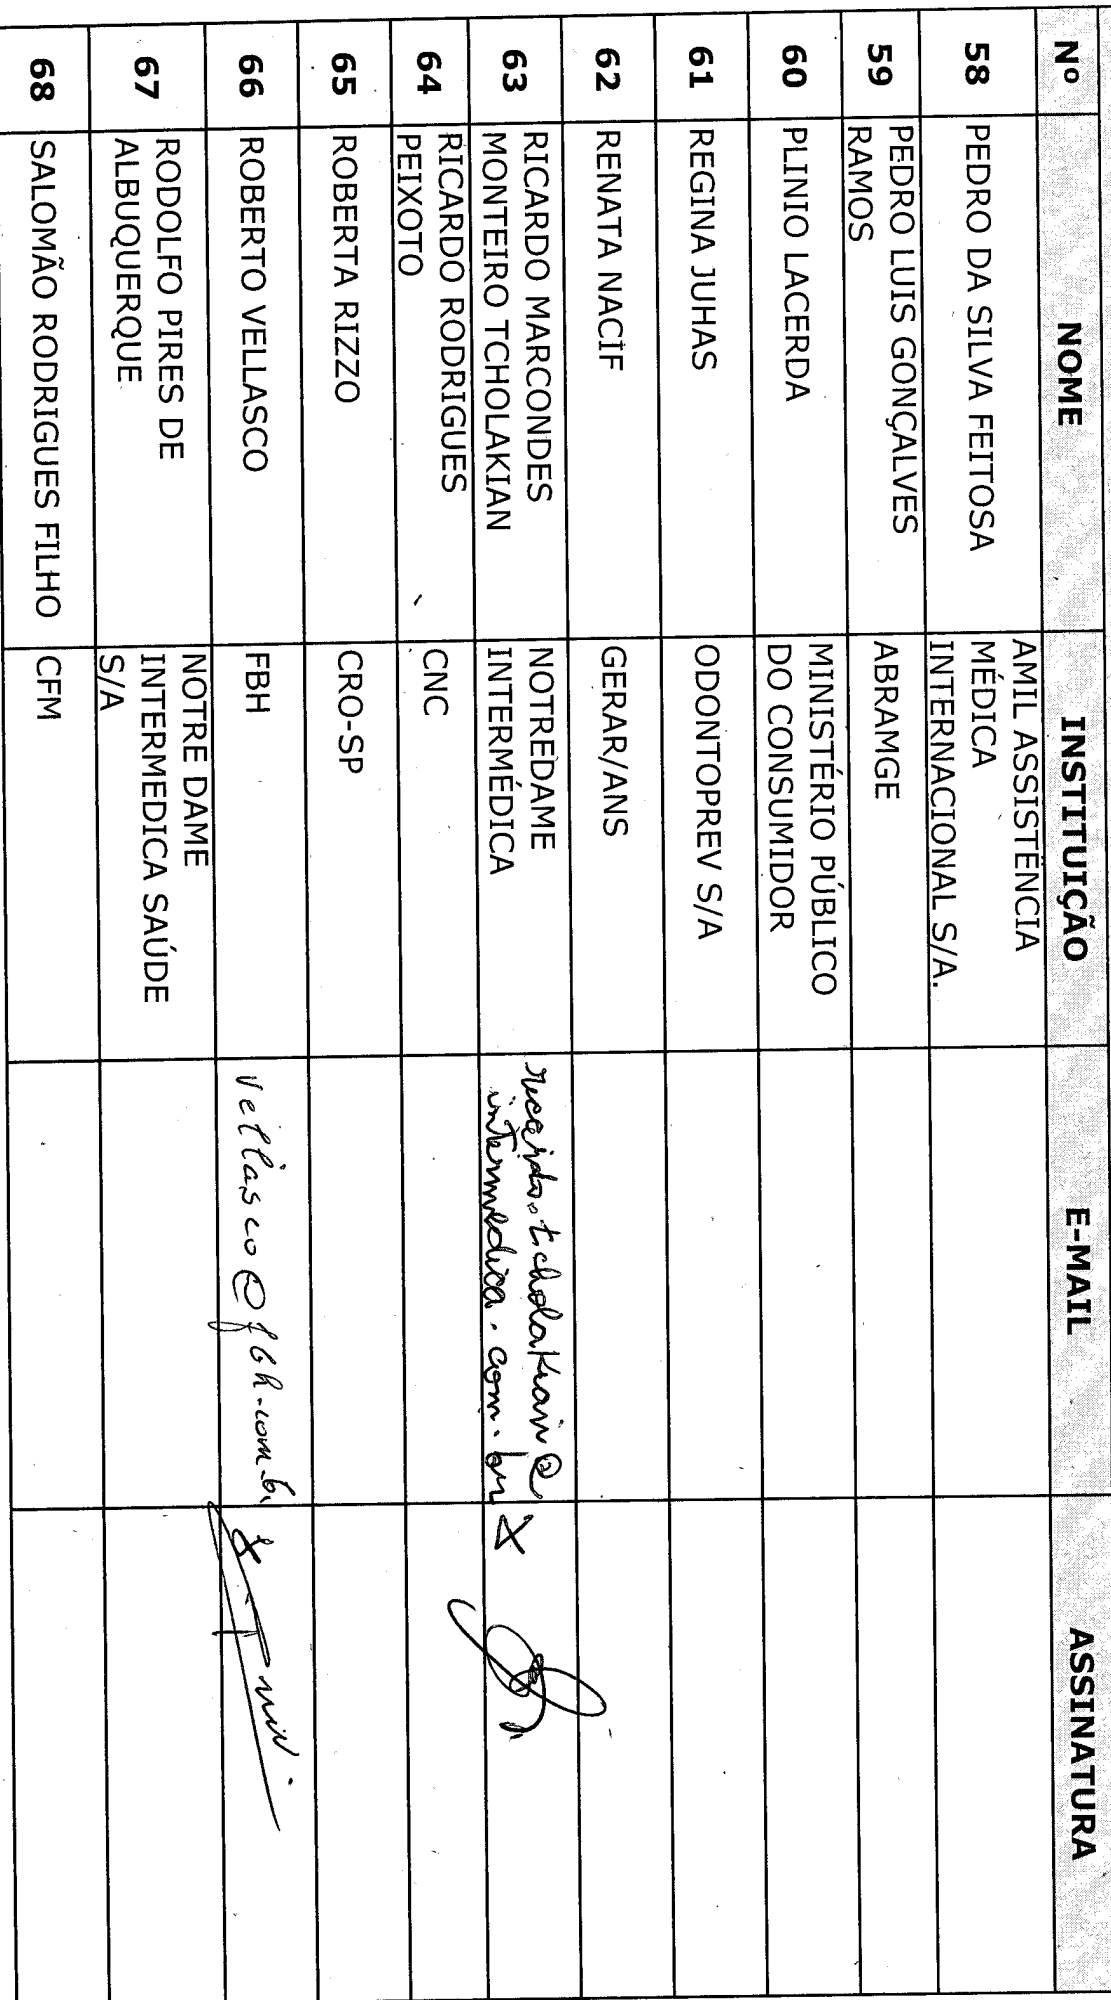 Nº NOME INSTITUIÇÃO E-MAIL ASSINATURA
58 PEDRO DA SILVA FEITOSA AMIL ASSISTÊNCIA
MÉDICA
INTERNACIONAL S/A.
59 PEDRO LUIS GONÇALVES
RAMOS ABRAMGE
60 PLINIO LACERDA MINISTÉRIO PÚBLICO
DO CONSUMIDOR
61 REGINA JUHAS ODONTOPREV S/A
62 RENATA NACIF GERAR/ANS
63 RICARDO MARCONDES
MONTEIRO TCHOLAKIAN NOTREDAME
INTERMÉDICA ricardo.tcholakian@
intermedica.com.br X
64 RICARDO RODRIGUES
PEIXOTO CNC
65 ROBERTA RIZZO CRO-SP
66 ROBERTO VELLASCO FBH vellasco@fbh.com.br X
67 RODOLFO PIRES DE
ALBUQUERQUE NOTRE DAME
INTERMEDICA SAÚDE
S/A
68 SALOMÃO RODRIGUES FILHO CFM